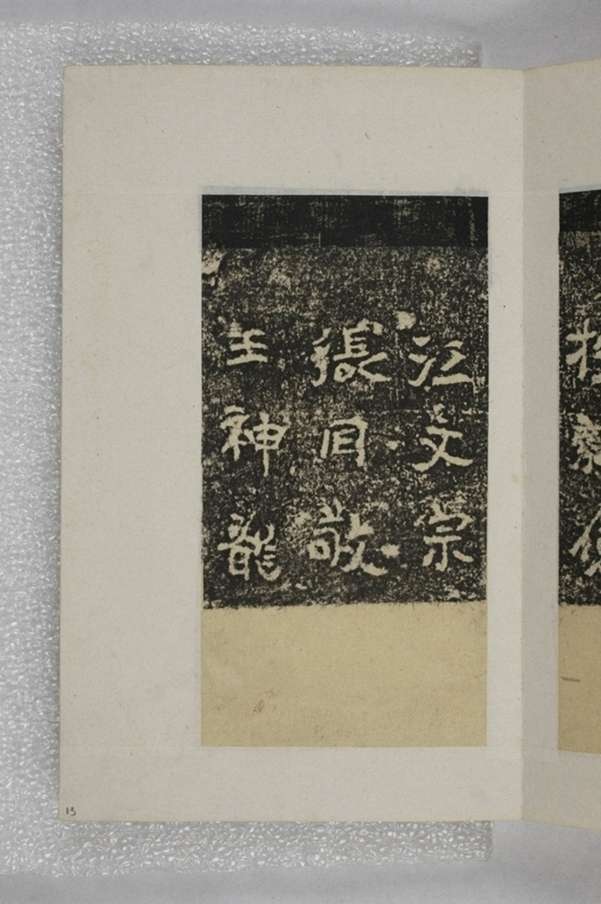 江文宗
張敬
王神龍
13